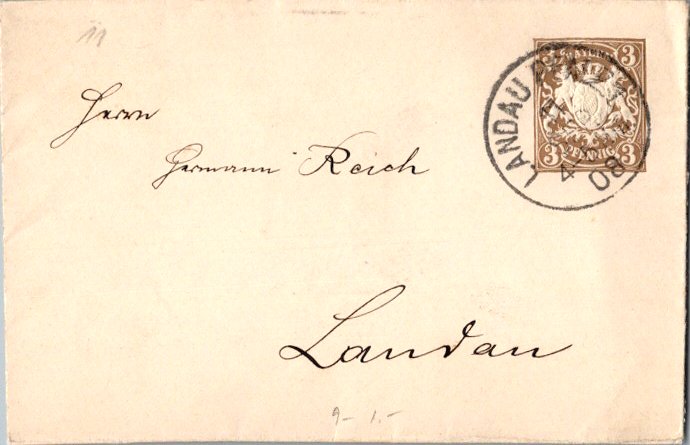 Herrn
Hermann Reich
Landau
LANDAU PFALZ
4
08
3 BAYERN 3
3 PFENNIG 3
9 - 1.-